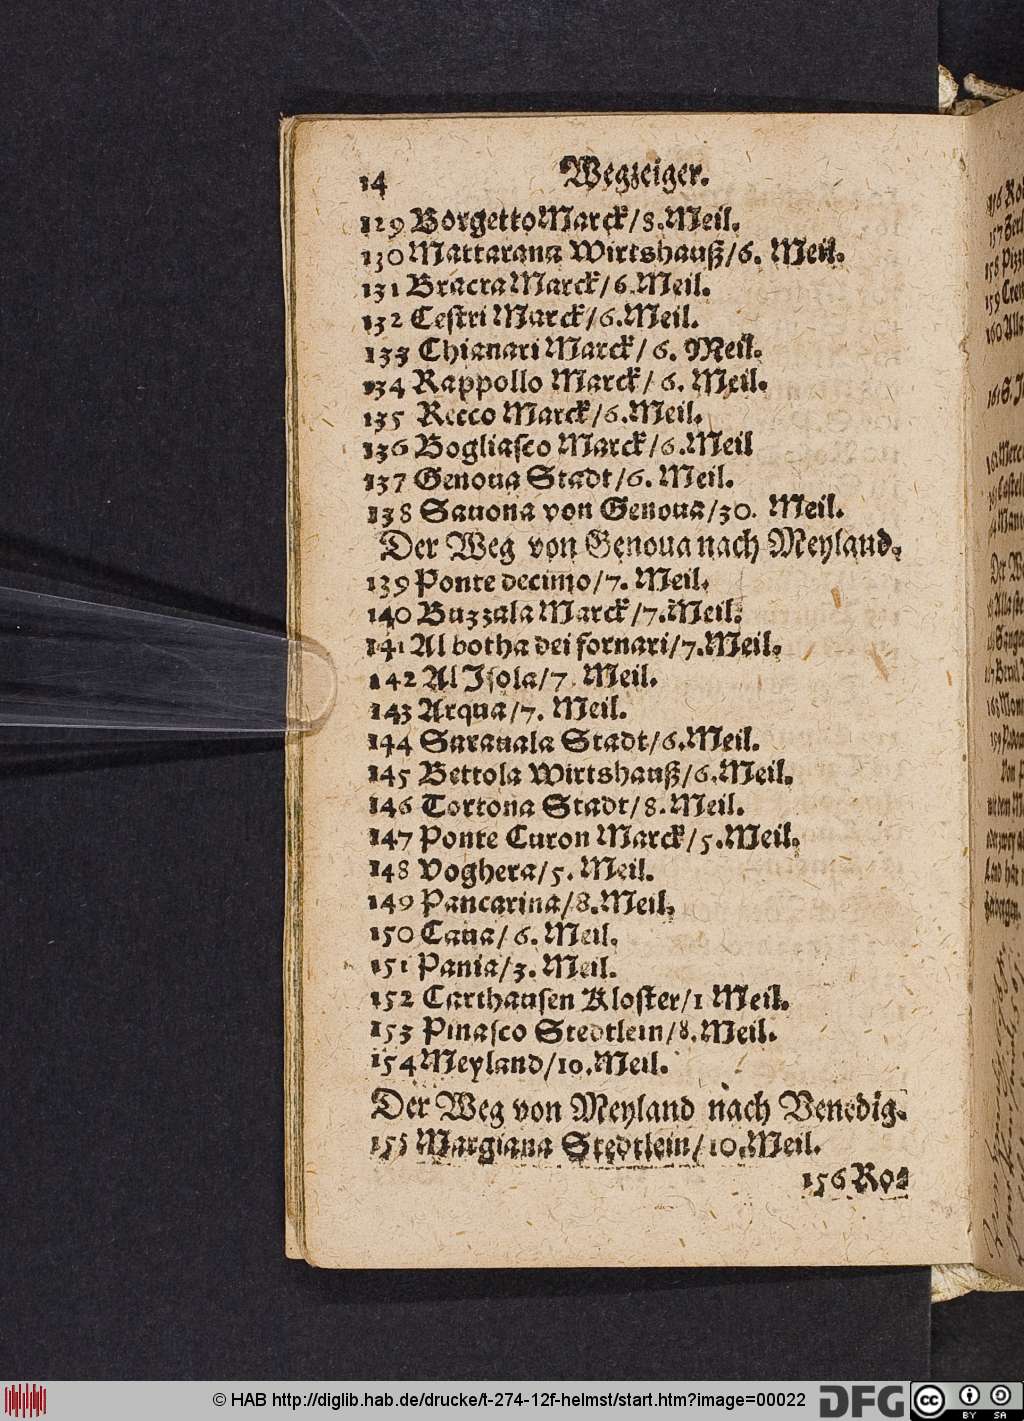 14 Wegzeiger.
129 Borgetto Marck/8. Meil.
130 Mattarana Wirtshauß/6. Meil.
131 Bracra Marck/6. Meil.
132 Cestri Marck/6. Meil.
133 Chianari Marck/6. Meil.
134 Rappollo Marck/6. Meil.
135 Recco Marck/6. Meil.
136 Bogliasco Marck/6. Meil
137 Genoua Stadt/6. Meil.
138 Sauona von Genoua/30. Meil.
Der Weg von Genoua nach Meyland.
139 Ponte decimo/7. Meil.
140 Buzzala Marck/7. Meil.
141 Al botha dei fornari/7. Meil.
142 Al Isola/7. Meil.
143 Arqua/7. Meil.
144 Sarauala Stadt/6. Meil.
145 Bettola Wirtshauß/6. Meil.
146 Tortona Stadt/8. Meil.
147 Ponte Curon Marck/5. Meil.
148 Voghera/5. Meil.
149 Pancarina/8. Meil.
150 Caua/6. Meil.
151 Pania/3. Meil.
152 Carthausen Kloster/1 Meil.
153 Pinasco Stedtlein/8. Meil.
154 Meyland/10. Meil.
Der Weg von Meyland nach Venedig.
155 Margiana Stedtlein/10. Meil.
156 Ro⸗
© HAB http://diglib.hab.de/drucke/t-274-12f-helmst/start.htm?image=00022 DFG cc BY SA